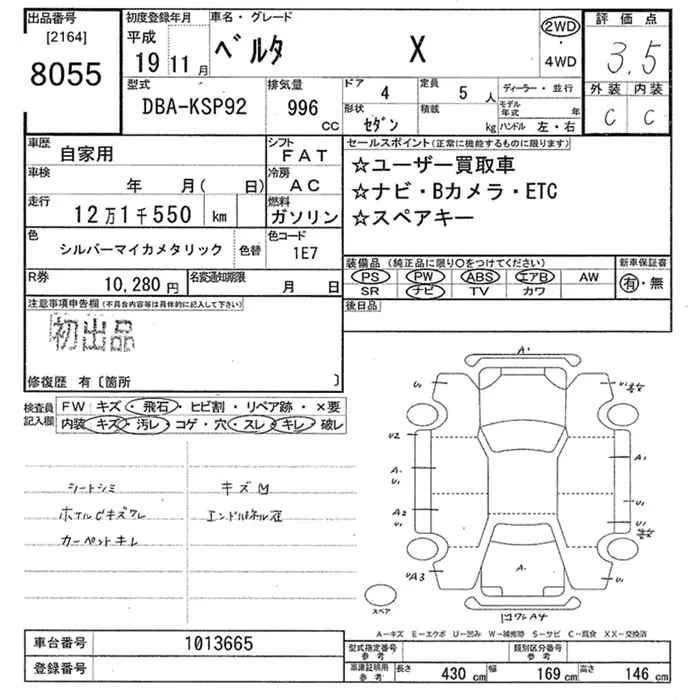 出品番号
[2164]
8055
初度登録年月
平成
19 11 月
車名・グレード
ベルタ X
2WD
・
4WD
評価点
3.5
外装 内装
C C
型式
DBA-KSP92
排気量
996 cc
ドア 4
定員 5 人
ディーラー・並行
形状 セダン
積載 kg
モデル年式 年
ハンドル 左・右
車歴 自家用
シフト FAT
車検 年 月( 日)
冷房 AC
走行 12万1千550 km
燃料 ガソリン
色 シルバーマイカメタリック 色替
色コード 1E7
R券 10,280 円
名変通知期限 月 日
セールスポイント(正常に機能するものに限ります)
☆ユーザー買取車
☆ナビ・Bカメラ・ETC
☆スペアキー
装備品(純正品に限り○をつけてください)
新車保証書
PS PW ABS エアB AW
SR ナビ TV カワ
有・無
後日品
注意事項申告欄(不具合内容等は具体的に記入して下さい)
初出品
修復歴 有〔箇所 〕
検査員記入欄
FW キズ・飛石・ヒビ割・リペア跡・×要
内装 キズ・汚レ・コゲ・穴・スレ・キレ・破レ
シートシミ
ホイルCキズワレ
カーペットキレ
キズM
エンドパネル歪
A¹
U1
U1
U2
A1
A.
U1
A2
U1
U1
U1
UA3
A.
U1
スペア
A-キズ E-エクボ U-凹み W-補修跡 S-サビ C-腐食 XX-交換済
車台番号 1013665
登録番号
型式指定番号 参考
類別区分番号 参考
車庫証明用 参考
長さ 430 cm
幅 169 cm
高さ 146 cm